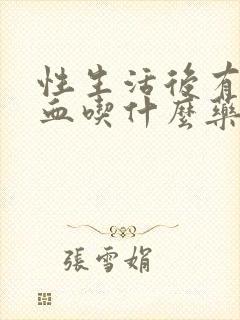 性生活後有
血喫什麼藥
張雪娟